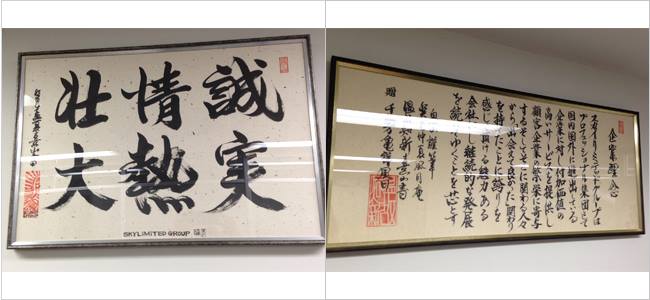 誠実
情熱
壮大
SKYLIMITED GROUP
企業理念
スカイリミテッドグループは
プロフェッショナル集団として
国内国外に進出している
企業に対し付加価値の
高いサービスを提供し
顧客企業の繁栄に寄与
するそしてそこに関わる人々
から出会えて良かった関わり
を持てたことに誇りを
感じて頂ける魅力ある
会社で継続的な発展
を続けてゆくことを志とす